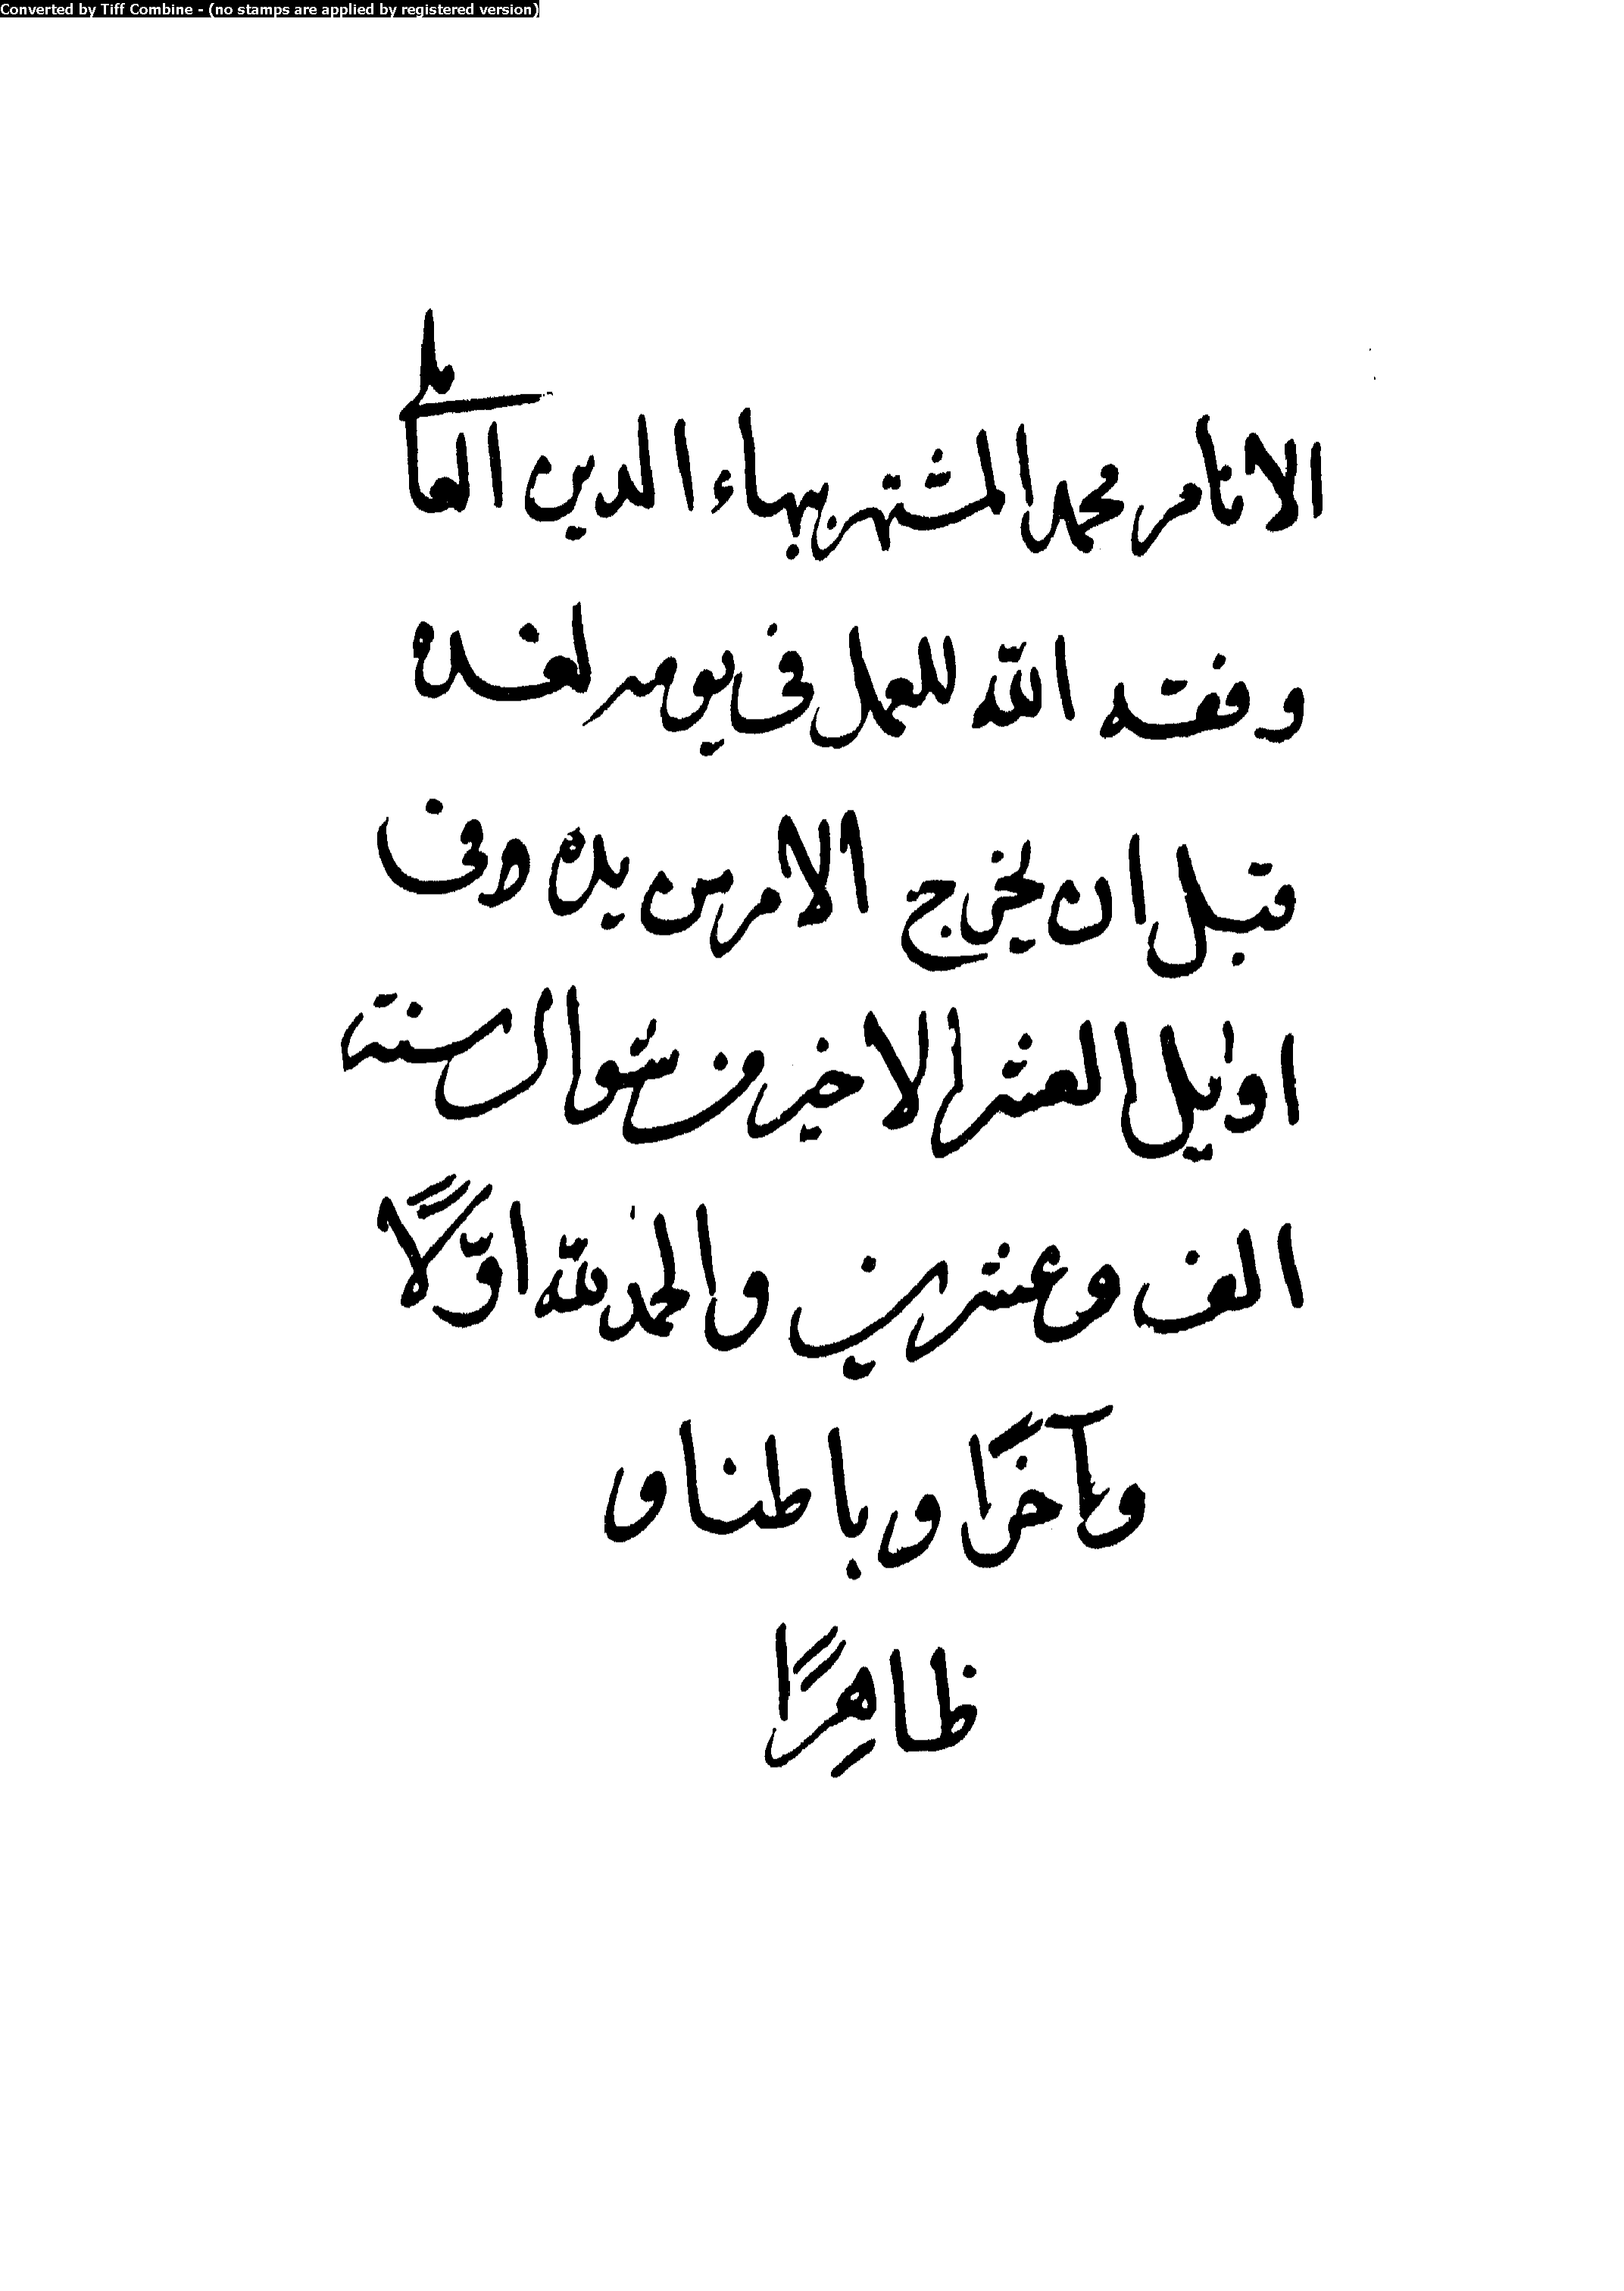 Converted by Tiff Combine - (no stamps are applied by registered version)
الانام محمد المشتهر ببهاء الدين العاملي
وفقه الله للعمل في يومه لغده
قبل ان يخرج الامر من يده وفى
اوايل العشر الاخير من شوال سنة
الف وعشرين والحمد لله اوّلًا
وآخرًا وباطنا و
ظاهِرًا